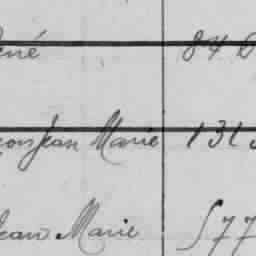 né 84
Jean Marie 131
Jean Marie 577